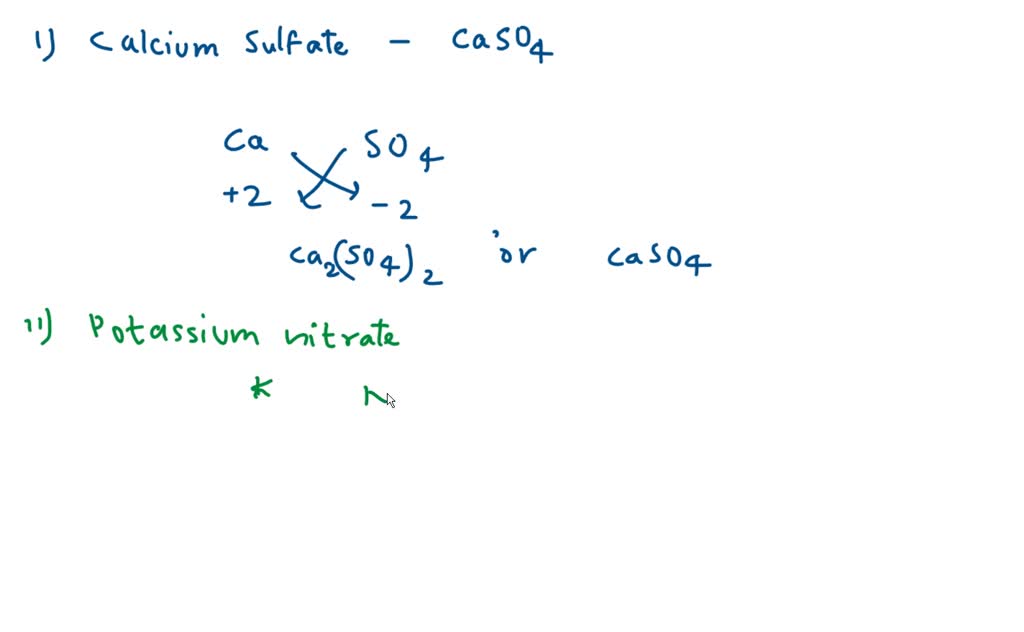 1) Calcium Sulfate - CaSO4
Ca SO4
+2 -2
Ca2(SO4)2 or CaSO4
11) Potassium nitrate
K N